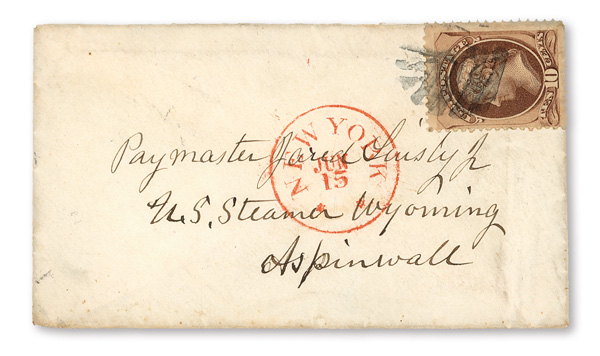 U.S. POSTAGE
10
TEN CENTS
NEW YORK
JUN
15
Paymaster Jared Linsly Jr
U.S. Steamer Wyoming
Aspinwall